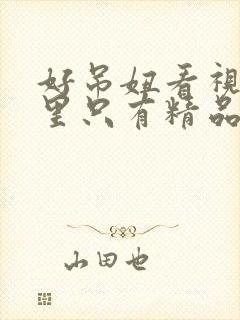 好吊妞看視
里只有精品
山田也